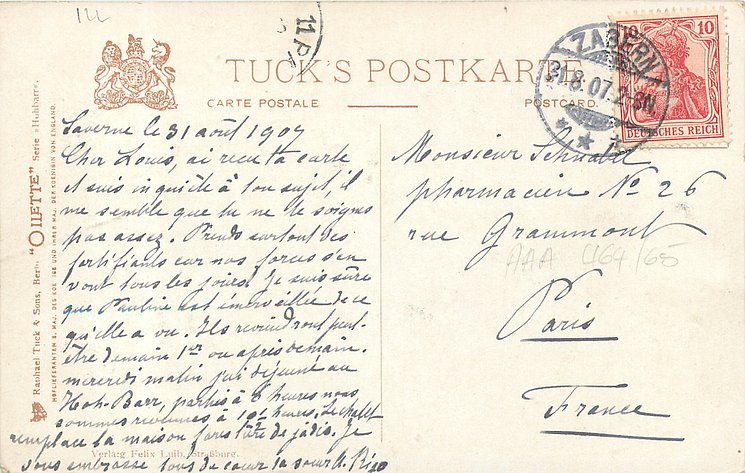 ILL
11 PI
TUCK'S POSTKARTE
CARTE POSTALE
POSTCARD.
ZABERN
31.8.07. 2-3N
10 10
DEUTSCHES REICH
Raphael Tuck & Sons, Berlin "OILETTE" Serie »Hohbarr«
HOFLIEFERANTEN S. MAJ. DES KOENIGS UND IHRER MAJ. DER KOENIGIN VON ENGLAND.
Saverne le 31 août 1907
Cher Louis, ai reçu ta carte
et suis inquiète à ton sujet, il
me semble que tu ne te soignes
pas assez. Prends surtout des
fortifiants car nos forces s'en
vont tous les jours. Je suis sûre
que Pauline est émerveillée de ce
qu'elle a vu. Ils reviendront peut-
être demain 1er ou après demain.
mercredi matin j'ai déjeuné au
Hoh-Barr, partis à 8 heures nous
sommes revenues à 10 1/2 heures. Le châlet
remplace la maison forestière de jadis. Je
vous embrasse tous de cœur ta sœur
Verlag Felix Luib, Straßburg.
Monsieur Schnabel
pharmacien No 26
rue Grammont
AAA 4164/65
Paris
France